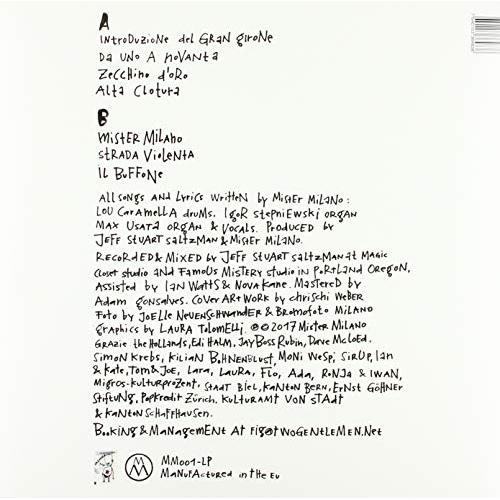 A
introduzione del gran girone
Da uno A novanta
Zecchino d'oro
Alta Clotura
B
Mister Milano
Strada Violenta
il Buffone
All songs and lyrics written by Mister Milano:
Lou Caramella drums. Igor Stepniewski organ
Max Usata organ & vocals. Produced by
Jeff Stuart Saltzman & Mister Milano.
Recorded & mixed by Jeff Stuart Saltzman at Magic
closet studio and Famous Mistery studio in Portland Oregon.
Assisted by Ian Watts & Nova Kane. Mastered by
Adam Gonsalves. Cover Artwork by Chrischi Weber
Foto by Joelle Neuenschwander & Bromofoto Milano
graphics by Laura Tolomelli. ℗ © 2017 Mister Milano
Grazie the Hollands, Edi Halm, Jay Boss Rubin, Dave McLoed.
Simon Krebs, Kilian Bohnenblust, Moni Wespi, Sirup, Ian
& Kate, Tom & Joe, Lara, Laura, Flo, Ada, Ronja & Iwan,
Migros-Kulturprozent, Stadt Biel, Kanton Bern, Ernst Göhner
Stiftung, Popkredit Zürich, Kulturamt von Stadt
& Kanton Schaffhausen.
Booking & Management at fig@twogentlemen.net
M
MM001-LP
Manufactured in the EU